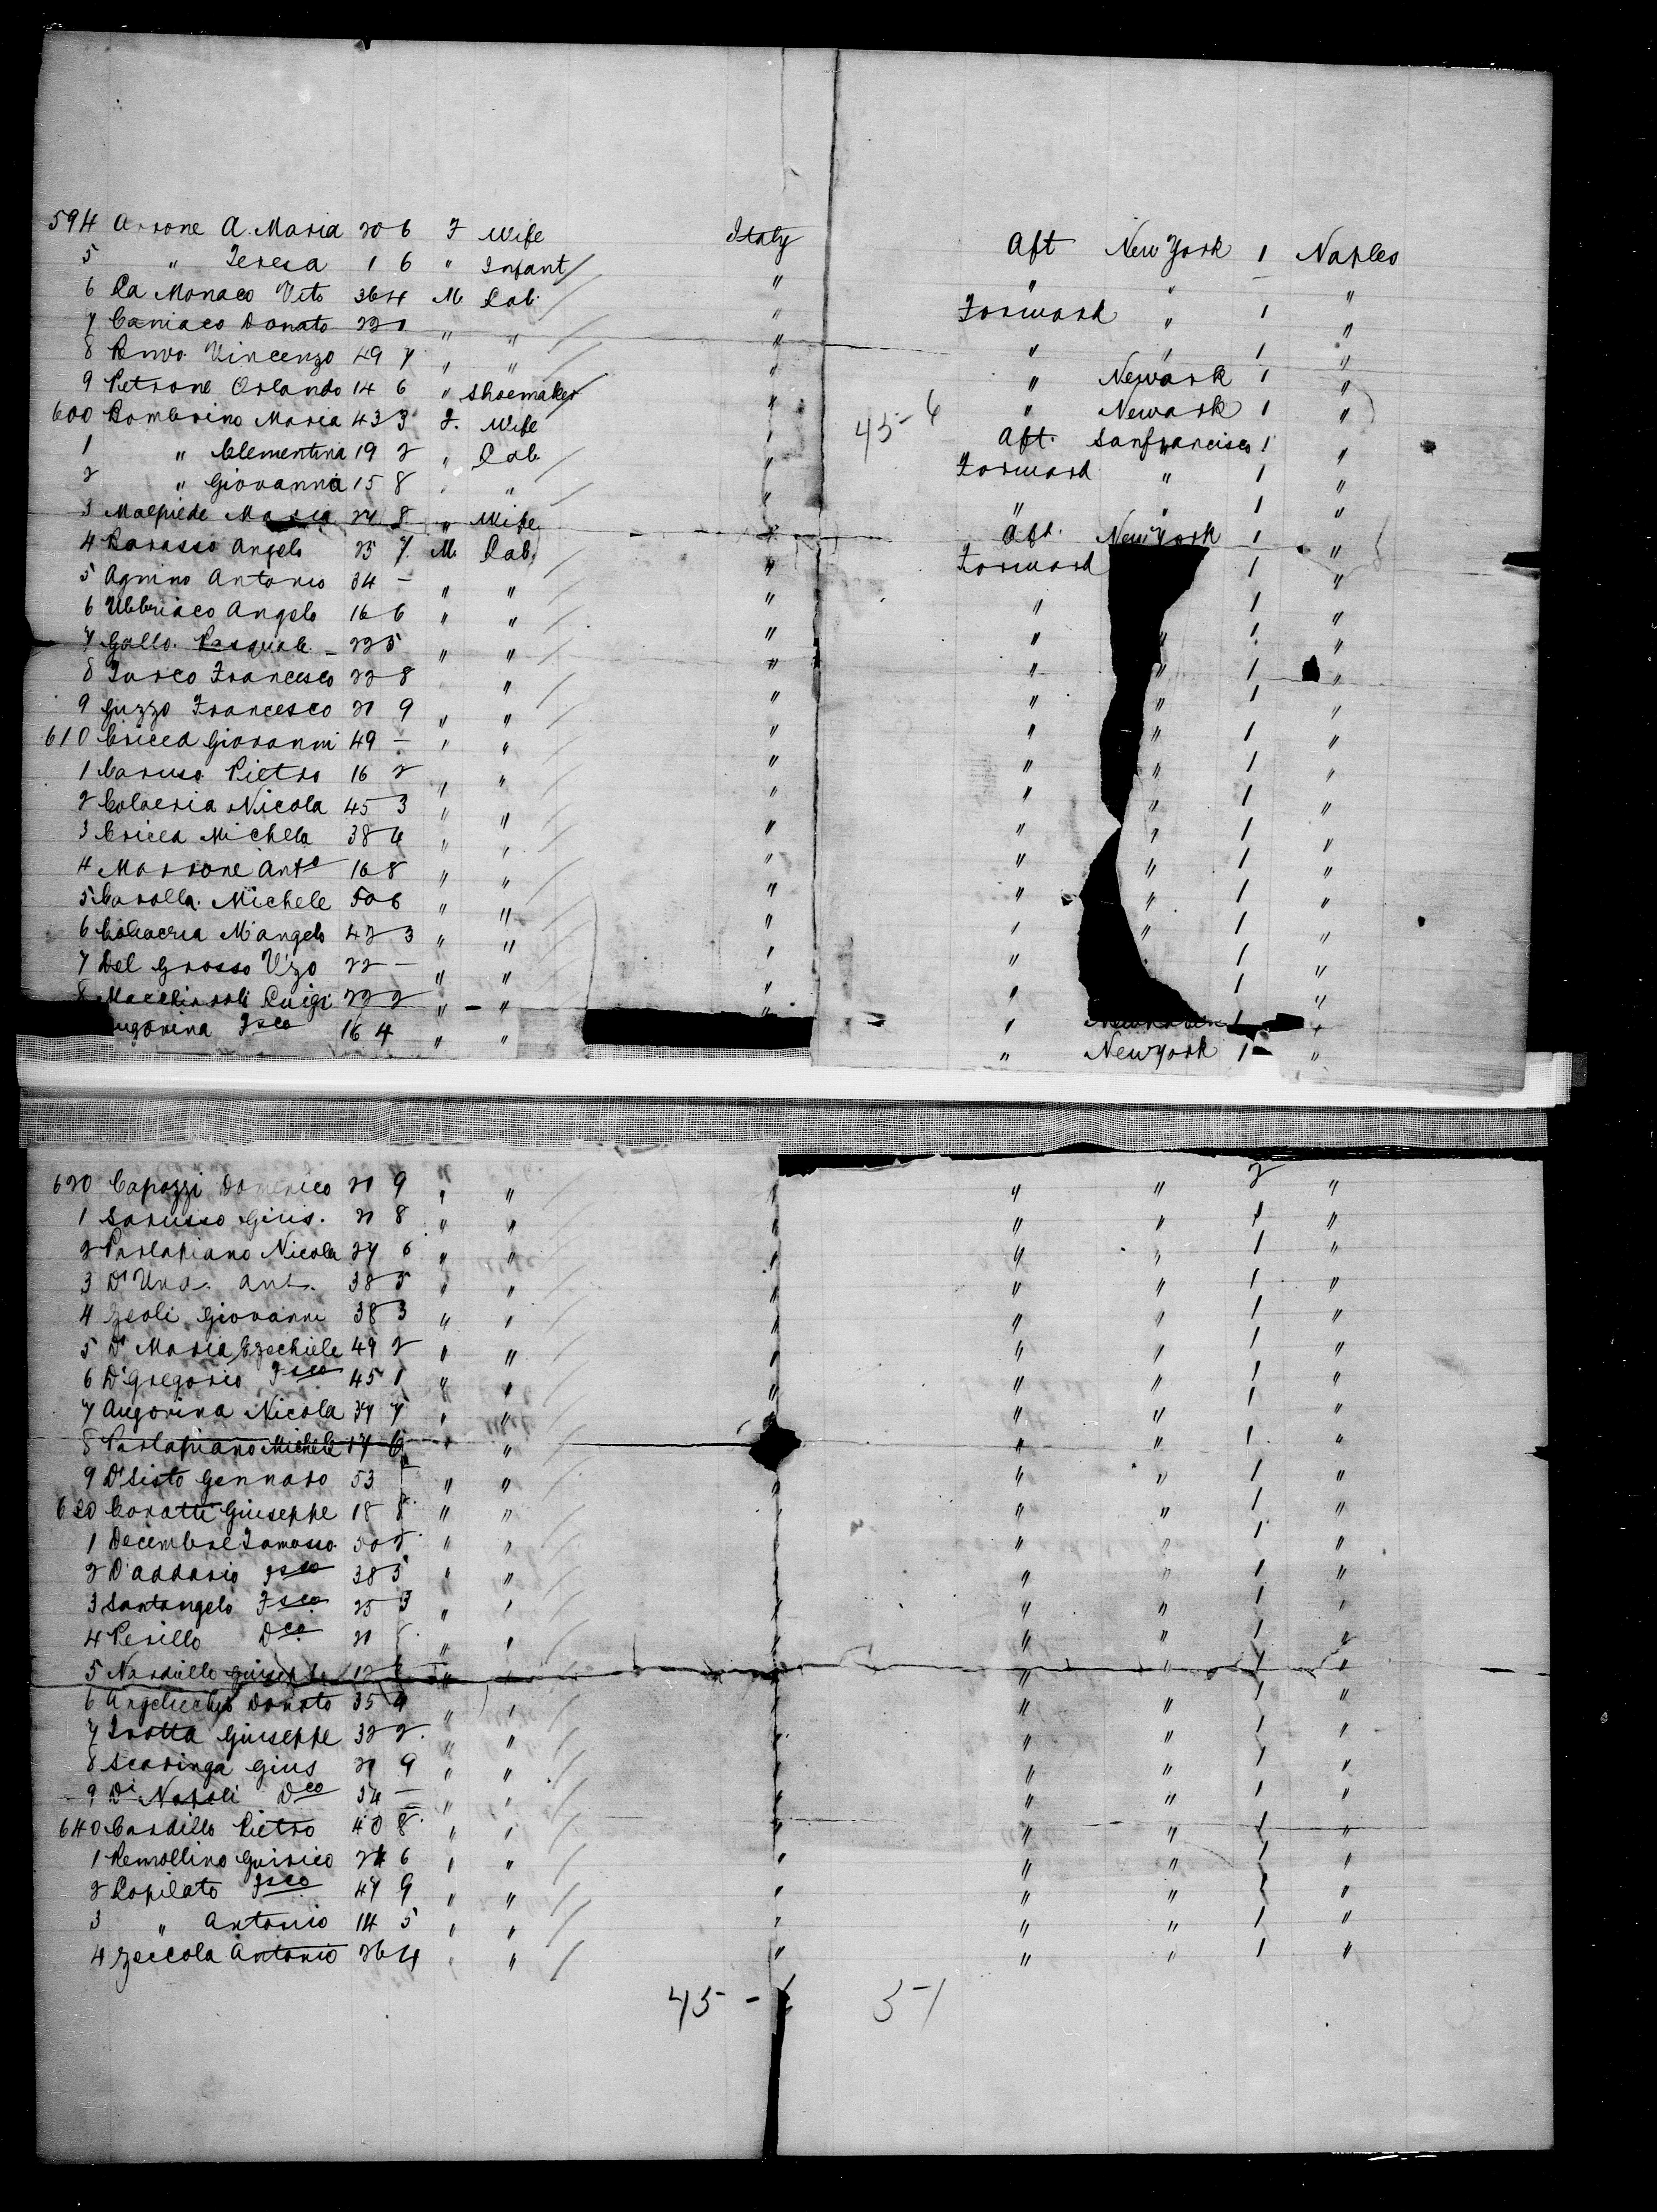 594 A rone A. Maria 20 6 F Wife Italy Aft New York 1 Naples
5 " Teresa 1 6 " Infant " " " "
6 La Monaco Vito 36 4 M. Lab. " Forward " 1 "
7 Caniaco Donato 22 1 " " " " " 1 "
8 Vincenzo 49 7 " " " " Newark 1 "
9 Petrone Orlando 14 6 " Shoemaker " " Newark 1 "
600 Lombrino Maria 43 3 F. Wife " 45-6 Aft. Sanfrancisco 1 "
1 " Clementina 19 2 " Lab. " Forward " 1 "
2 " Giovanna 15 8 " " " " " 1 "
3 Malpiede Maria 27 8 " Wife " Aft. New York 1 "
4 Larasso Angelo 25 7. M. Lab. " Forward 1 "
5 Agnino Antonio 34 – " " " " 1 "
6 Ubbriaco Angelo 16 6 " " " " " 1 "
7 Gallo. Pasquale 22 5 " " " " " 1 "
8 Turco Francesco 22 8 " " " " " 1 "
9 Guzzo Francesco 21 9 " " " " " 1 "
610 Cricca Giovanni 49 – " " " " " 1 "
1 Caruso Pietro 16 2 " " " " " 1 "
2 Colacria Nicola 45 3 " " " " " 1 "
3 Cricca Michele 38 4 " " " " " 1 "
4 Marrone Anto 16 8 " " " " " 1 "
5 Carolla. Michele 50 6 " " " " " 1 "
6 M'angelo 42 3 " " " " 1 "
7 Del Grosso V'zo 22 – " " " " 1 "
8 Luigi 22 2 " " " " 1 "
ugorina Fsco 16 4 " " " New York 1 "
620 Capozzi Domenico 21 9 " " " " " 2 "
1 Sarusso Gius. 21 8 " " " " " 1 "
2 Parlapiano Nicola 27 6 " " " " " 1 "
3 D' Una. Ant. 38 5 " " " " " 1 "
4 Zeoli Giovanni 38 3 " " " " " 1 "
5 Di Maria Ezechiele 49 2 " " " " " 1 "
6 Di Gregorio Fsco 45 1 " " " " " 1 "
7 Augorina Nicola 37 7 " " " " " 1 "
8 Parlapiano Michele 17 6 " " " " " 1 "
9 Di Sisto Gennaro 53 " " " " " 1 "
620 Coratti Giuseppe 18 8 " " " " " 1 "
1 Decembre Tomasso 50 2 " " " " " 1 "
2 D'Addario Fsco 38 5 " " " " " 1 "
3 Santangelo Fsco 25 3 " " " " " 1 "
4 Perillo Dco 21 " " " " " 1 "
5 Nardullo Giuseppe 12 " " " " " 1 "
6 Donato 35 4 " " " " " 1 "
7 Trotta Giuseppe 32 2 " " " " " 1 "
8 Scaringa Gius 21 9 " " " " " 1 "
9 Di Napoli Dco 34 – " " " " " 1 "
640 Cardillo Pietro 40 8 " " " " " 1 "
1 Remollino 24 6 " " " " " 1 "
2 Lopilato Fsco 47 9 " " " " " 1 "
3 " Antonio 14 5 " " " " " 1 "
4 Zeccola Antonio 26 4 " " " " " 1 "
45 – 51